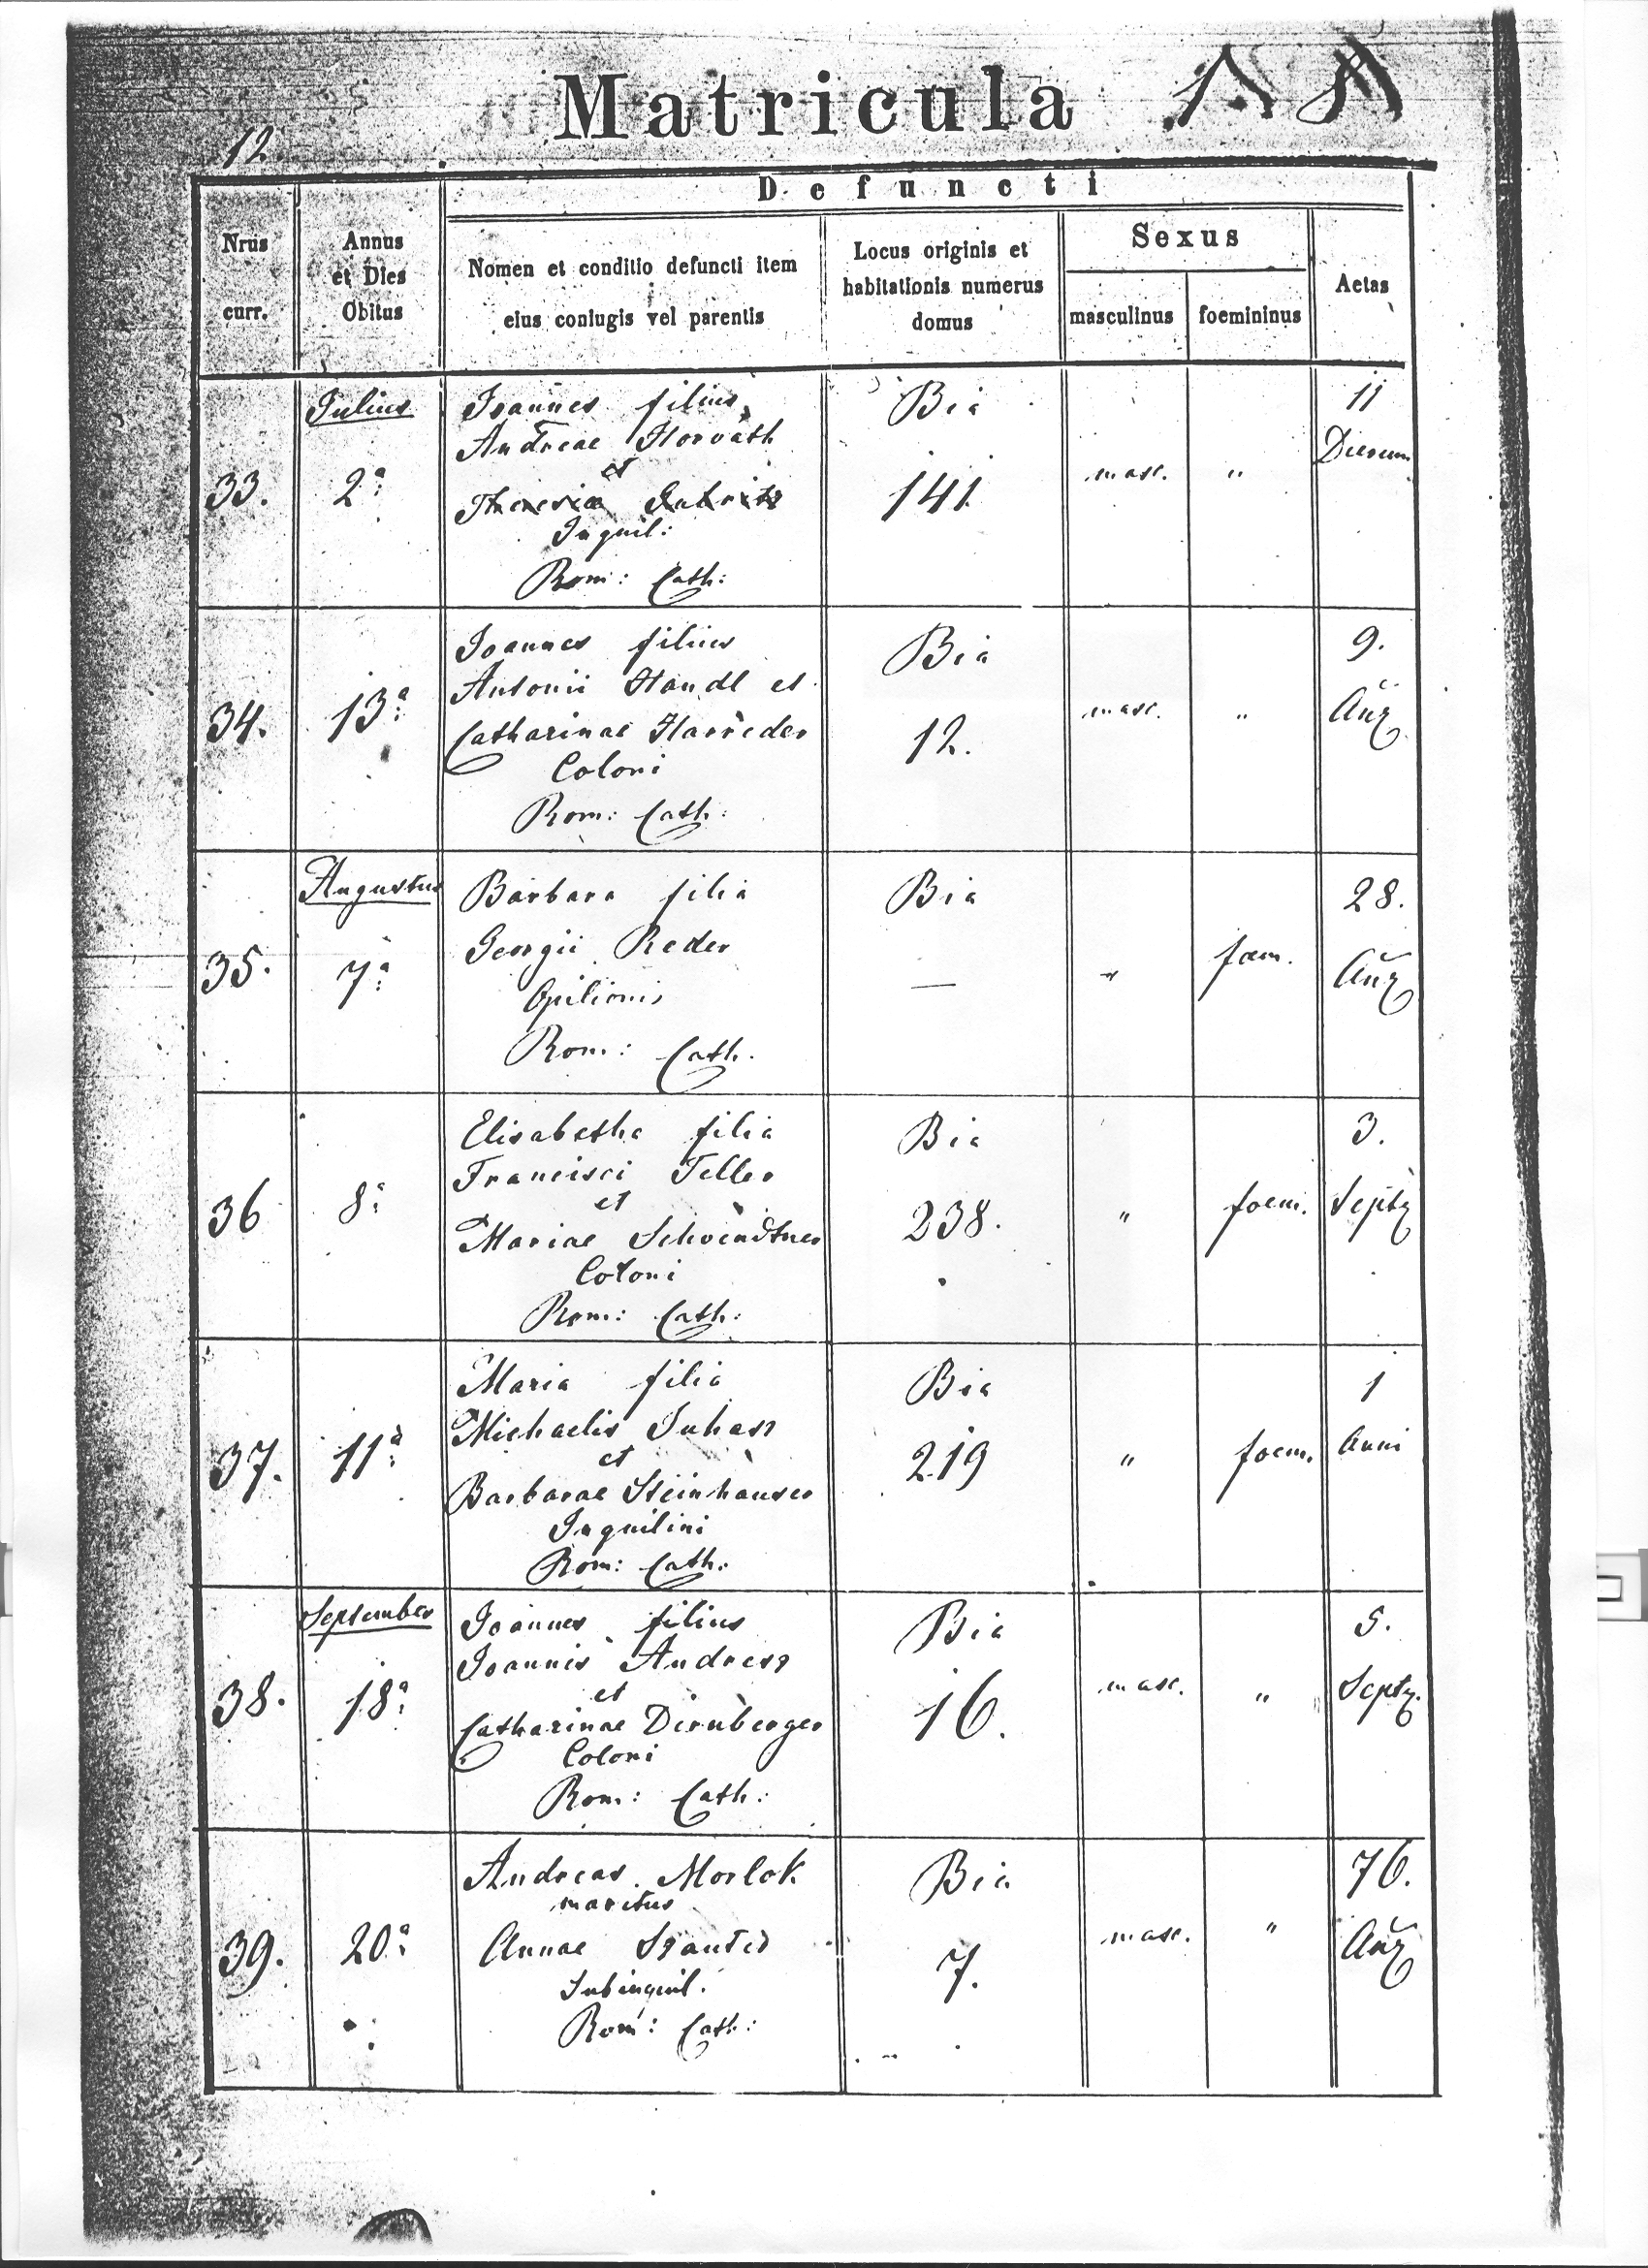 12.
Matricula
Defuncti
Nrus
curr.
Annus
et Dies
Obitus
Nomen et conditio defuncti item
eius coniugis vel parentis
Locus originis et
habitationis numerus
domus
Sexus
masculinus
foemininus
Aetas
33.
Julius
2a:
Joannes filius
Andreae Horvath
et
Theresiae
Inquil:
Rom: Cath:
Bia
141
masc.
"
11
Dierum
34.
13a:
Joannes filius
Antonii Handl et
Catharinae Harreder
Coloni
Rom: Cath:
Bia
12.
masc.
"
9.
35.
Augustus
7a:
Barbara filia
Georgii Reder
Opilionis
Rom: Cath.
Bia
—
"
foem.
28.
36
8a:
Elisabetha filia
Francisci Teller
et
Mariae Schvendtner
Coloni
Rom: Cath:
Bia
238.
"
foem.
3.
Septz
37.
11a:
Maria filia
Michaelis Juhasz
et
Barbarae Steinhauser
Inquilini
Rom: Cath:
Bia
219
"
foem.
1
Anni
38.
September
18a:
Joannes filius
Joannis Andresz
et
Catharinae Dirnberger
Coloni
Rom: Cath:
Bia
16.
masc.
"
5.
Septz.
39.
20a:
Andreas Morlok
maritus
Annae
Subinquil.
Rom: Cath:
Bia
7.
masc.
"
76.